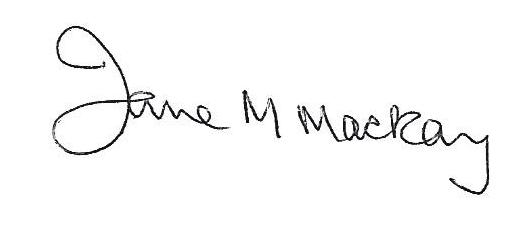 Jane M Mackay